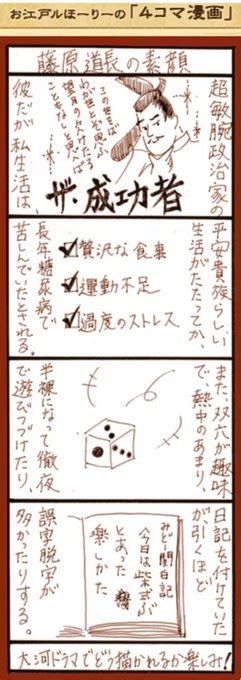 お江戸ルほーりーの「４コマ漫画」
藤原道長の素顔
超敏腕政治家の
この世をば
わが世とぞ思ふ
望月のかけたる
ことも なしと思へば
ザ・成功者
彼だが私生活は、
平安貴族らしい
生活がたたってか、
贅沢な食事
運動不足
過度のストレス
長年糖尿病で
苦しんでいたとされる。
また、双六が趣味
で、熱中のあまり、
半裸になって徹夜
で遊びつづけたり、
日記を付けていた
が、引くほど
みどー関白記
今日は紫式ぶ
とあった
楽しかた
誤字脱字が
多かったりする。
大河ドラマでどう描かれるか楽しみ！